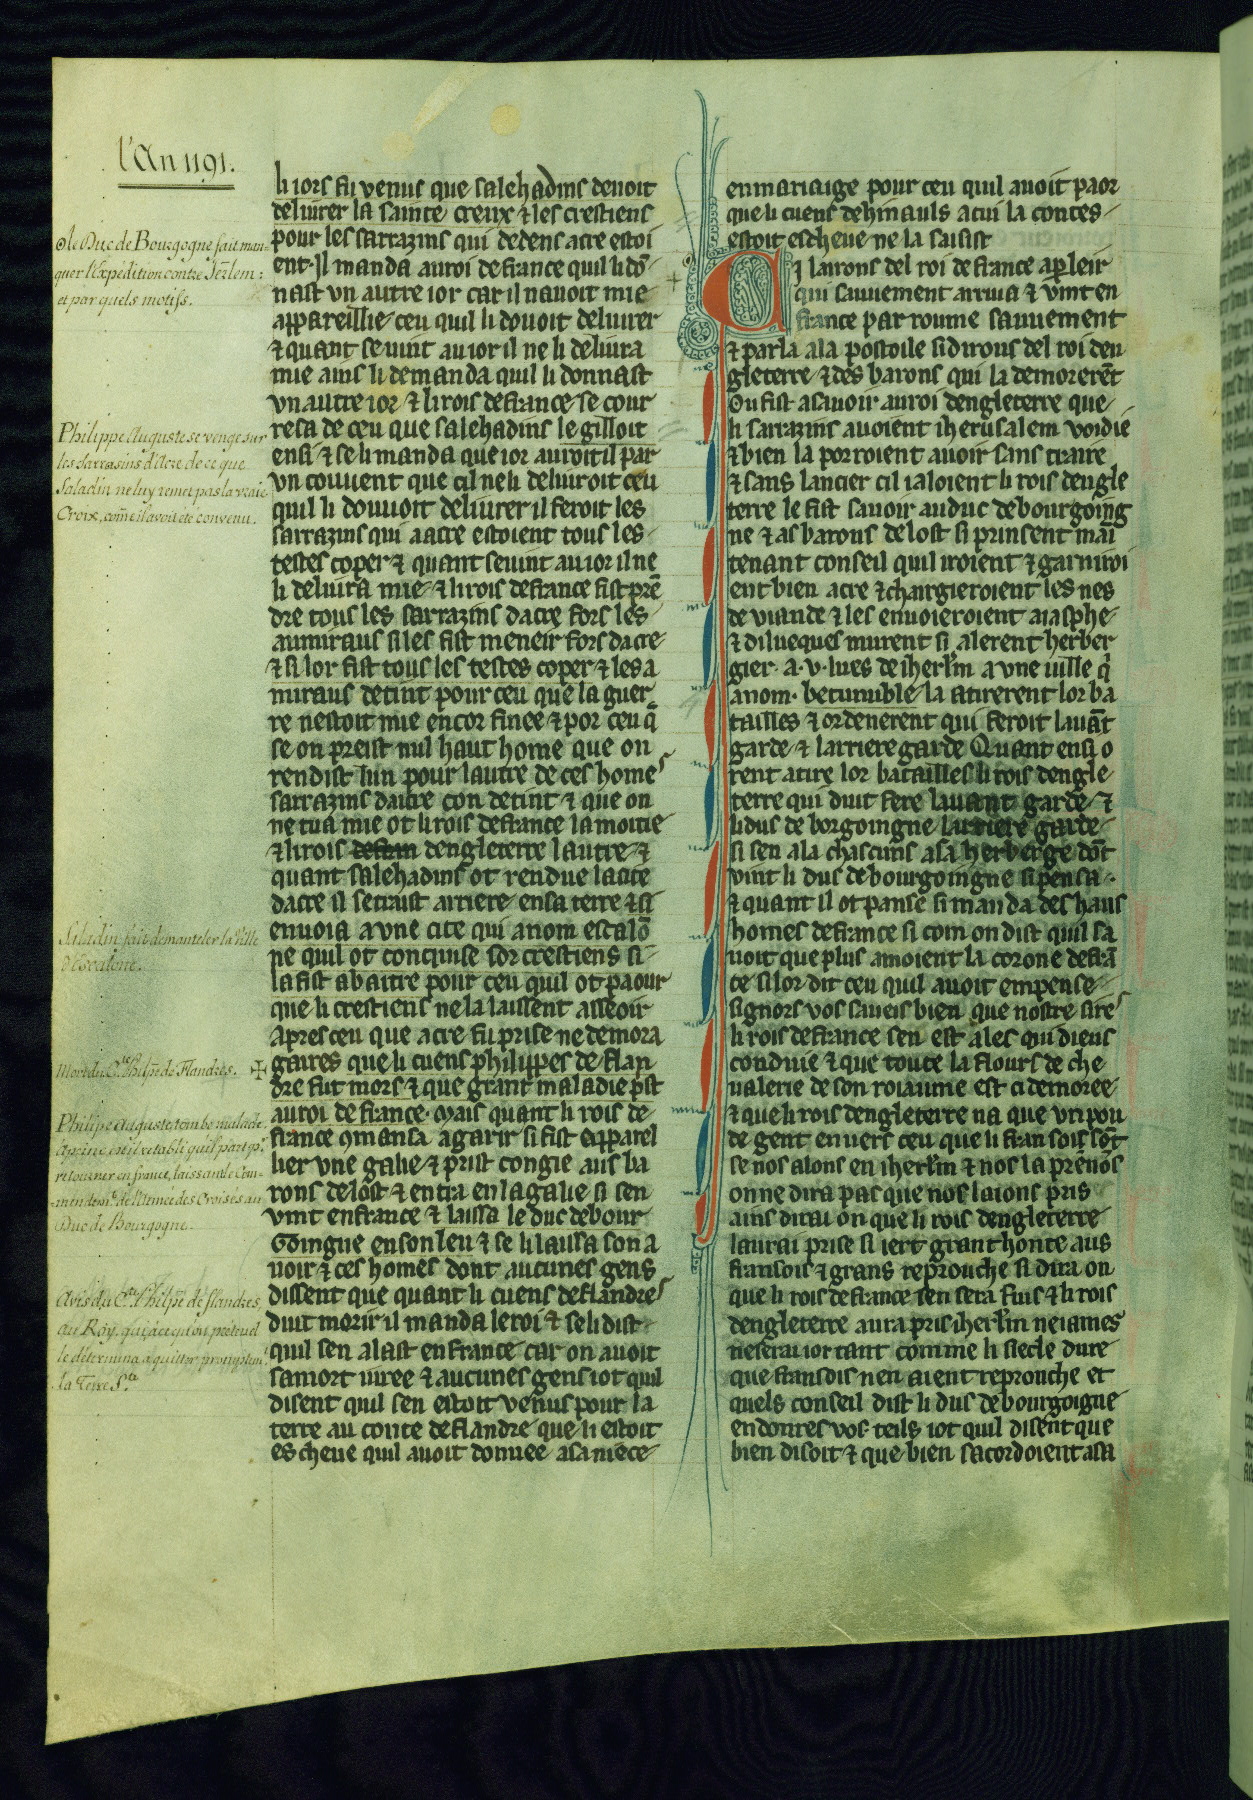 l'An 1191.
le Duc de Bourgogne fait man-
quer l'Expédition contre Jérlem:
et par quels motifs.
Philippe Auguste se venge sur
les Sarrasins d'Acre de ce que
Saladin ne luy remet pas la vraie
Croix, come il avoit été convenu.
Saladin fait démanteler la ville
d'Escalone.
Mort du Cte Philpe de Flandres.
Philipe Auguste tombe malade.
Apeine est il retabli qu'il part pr.
retourner en france, laissant le Com-
mandemt. de l'Armée des Croisés au
Duc de Bourgogne.
Avis du Cte. Philpe de flandres,
au Roy,
le détermina a quitter promptemt.
la Terre Ste.
li iors fu venus que salehadins deuoit
deliurer la sainte creux ⁊ les crestiens
pour les sarrazins qui dedens acre estoi
ent. Il manda au roi de france quil li dō
nast vn autre ior car il nauoit mie
appareillie ceu quil li douoit deliurer
⁊ quant se uint au ior il ne li deliura
mie ains li demanda quil li donnast
vn autre ior ⁊ li rois de france se cour
resa de ceu que salehadins le gilloit
ensi ⁊ se li manda que ior auroit il par
vn couuent que cil ne li deliuroit ceu
quil li douuoit deliurer il feroit les
sarrazins qui a acre estoient tous les
testes coper ⁊ quant se uint au ior il ne
li deliura mie ⁊ li rois de france fist prē
dre tous les sarrazins dacre fors les
aumiraus si les fist meneir fors dacre
⁊ si lor fist tous les testes coper ⁊ les a
miraus detint pour ceu que la guer
re nestoit mie encor finee ⁊ por ceu q̄
se on preist nul haut home que on
rendist lun pour lautre de ces homes
sarrazins dautre con detint ⁊ que on
ne tua mie ot li rois de france la moitie
⁊ li rois dengleterre lautre ⁊
quant salehadins ot rendue la cite
dacre si se traist arriere en sa terre ⁊ si
enuoia a vne cite qui a nom escalō
ne quil ot conquise sor crestiens si
la fist abaitre pour ceu quil ot paour
que li crestiens ne la laissent asseoir
apres ceu que acre fu prise ne demora
gaires que li cuens philippes de flan
dre fut mors ⁊ que grant maladie pst
au roi de france. Mais quant li rois de
france 9mansa a garir si fist apparel
lier vne galie ⁊ prist congie aus ba
rons de lost ⁊ entra en la galie si sen
vint en france ⁊ laissa le duc de bour
Goingne en son leu ⁊ se li laissa son a
uoir ⁊ ces homes dont aucunes gens
dissent que quant li cuens de flandres
duit morir il manda le roi ⁊ se li dist
quil sen alast en france car on auoit
sa mort iuree ⁊ aucunes gens iot quil
disent quil sen estoit venus pour la
terre au conte de flandre que li estoit
escheue quil auoit donnee a sa niece
en mariaige pour ceu quil auoit paor
que li cuens de hinauls a cui la contes
estoit escheue ne la saisist
Ci lairons del roi de france a pleir
qui sauuement arriua ⁊ vint en
france par roume sauuement
⁊ parla a la postoile si dirons del roi den
gleterre ⁊ des barons qui la demorerēt
On fist asauoir au roi dengleterre que
li sarrazins auoient iherusalem voidie
⁊ bien la porroient auoir sans traire
⁊ sans lancier cil i aloient li rois dengle
terre le fist sauoir au duc de bourgoing
ne ⁊ as barons de lost si prinsent mai
tenant conseil quil iroient ⁊ garniroi
ent bien acre ⁊ chairgieroient les nes
de viande ⁊ les enuoieroient a iasphe
⁊ diluequel murent si alerent herber
gier. a .v. lues de iherl'm a vne uille q̄
a nom. betunuble la atirerent lor ba
tailles ⁊ ordenerent qui feroit lauāt
garde ⁊ larriere garde Quant ensi o
rent atire lor batailles li rois dengle
terre qui duit fere lauant garde ⁊
li dus de borgoingne larriere garde
si sen ala chascuns a sa herberge dōt
vint li dus de bourgoingne si pensa.
⁊ quant il ot panse si manda des haus
homes de france si com on dist quil sa
uoit que plus amoient la corone de frā
ce si lor dit ceu quil auoit empense
signors vos saueis bien que nostre sires
li rois de france sen est ales qui diens
conduie ⁊ que toute la flours de che
ualerie de son roiaume est ci demoree
⁊ que li rois dengleterre na que vn pou
de gent enuers ceu que li fransois sōt
se nos alons en iherl'm ⁊ nos la prenōs
on ne dira pas que nos laions pris
ains dirai on que li rois dengleterre
laurai prise si iert grant honte aus
fransois ⁊ grans reprouche si dira on
que li rois de france sen sera fuis ⁊ li rois
dengleterre aura pris iherl'm ne iames
ne serai ior tant comme li siecle dure
que fransois nen aient reprouche et
quels conseil dist li dus de bourgoigne
en donres vos. teils iot quil disent que
bien disoit ⁊ que bien sacordoient a sa